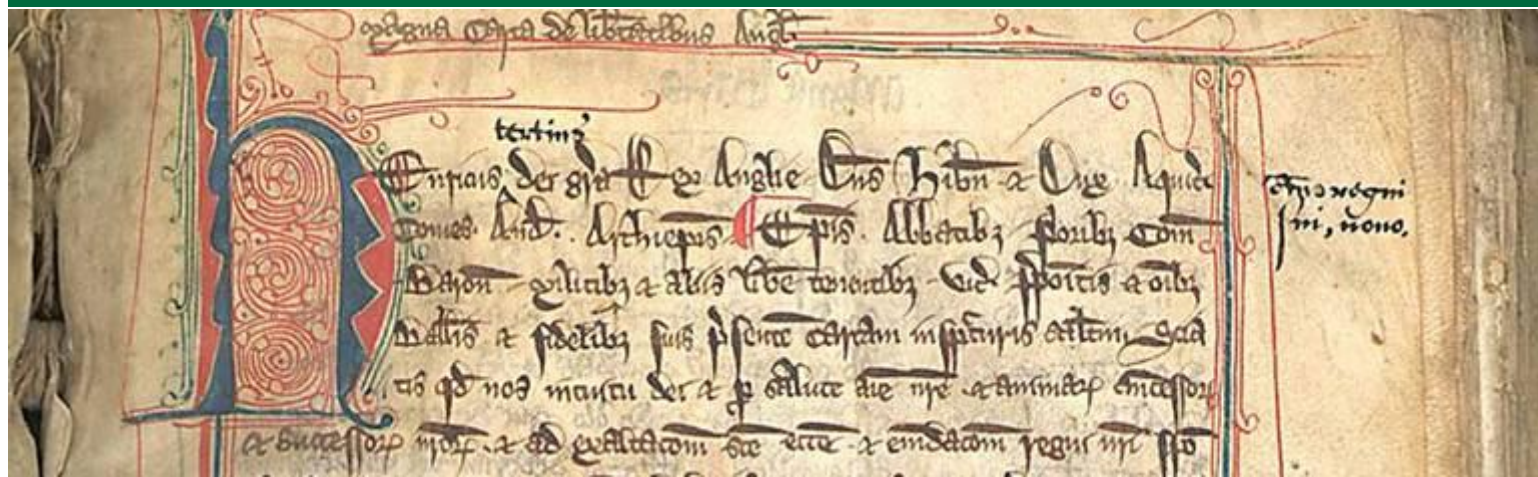 Magna Carta de lib̄tatibus Angl̄
tertiuꝰ
Henricus dei gr̄a Rex Anglie Dn̄s Hib̄n ⁊ Dux Aquit̄
Comes And̄. Archiep̄is Ep̄is. Abbatibꝫ Prioribꝫ Com̄
Baron̄ Militibꝫ ⁊ aliis lib̄e tenentibꝫ vic̄ p̄poītis ⁊ om̄ibꝫ
Ballīs ⁊ fidelibꝫ suis p̄sente cartam insp̄cturis salt̄m Scia
tis qd̄ nos intuitu dei ⁊ ꝑ salute aīe nr̄e ⁊ animaꝝ antecessoꝝ
⁊ successoꝝ nr̄oꝝ ⁊ ad exaltacōm sc̄e ecc̄e ⁊ emendacōm regni nr̄i spo
regni
nono.